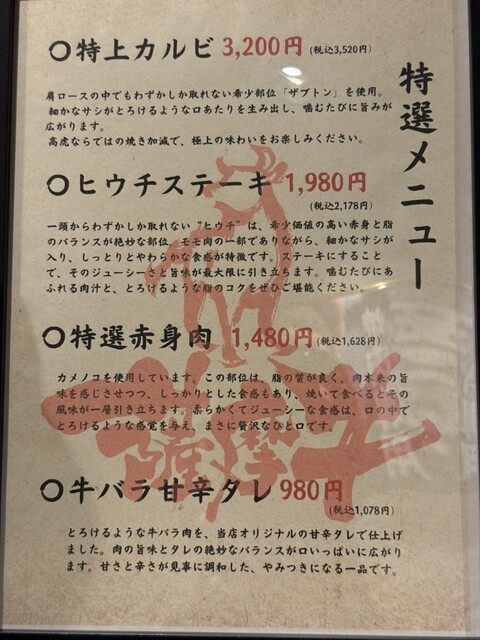 特選メニュー
〇特上カルビ 3,200円 (税込3,520円)
肩ロースの中でもわずかしか取れない希少部位「ザブトン」を使用。
細かなサシがとろけるような口あたりを生み出し、噛むたびに旨みが
広がります。
高虎ならではの焼き加減で、極上の味わいをお楽しみください。
〇ヒウチステーキ 1,980円
(税込2,178円)
一頭からわずかしか取れない"ヒウチ"は、希少価値の高い赤身と脂
のバランスが絶妙な部位。モモ肉の一部でありながら、細かなサシが
入り、しっとりとやわらかな食感が特徴です。ステーキにすること
で、そのジューシーさと旨味が最大限に引き立ちます。噛むたびにあ
ふれる肉汁と、とろけるような脂のコクをぜひご堪能ください。
〇特選赤身肉 1,480円 (税込1,628円)
カメノコを使用しています。この部位は、脂の質が良く、肉本来の旨
味を感じさせつつ、しっかりとした食感もあり、焼いて食べるとその
風味が一層引き立ちます。柔らかくてジューシーな食感は、口の中で
とろけるような感覚を与え、まさに贅沢なひと口です。
薩摩牛
〇牛バラ甘辛タレ 980円
(税込1,078円)
とろけるような牛バラ肉を、当店オリジナルの甘辛タレで仕上げ
ました。肉の旨味とタレの絶妙なバランスが口いっぱいに広がり
ます。甘さと辛さが見事に調和した、やみつきになる一品です。